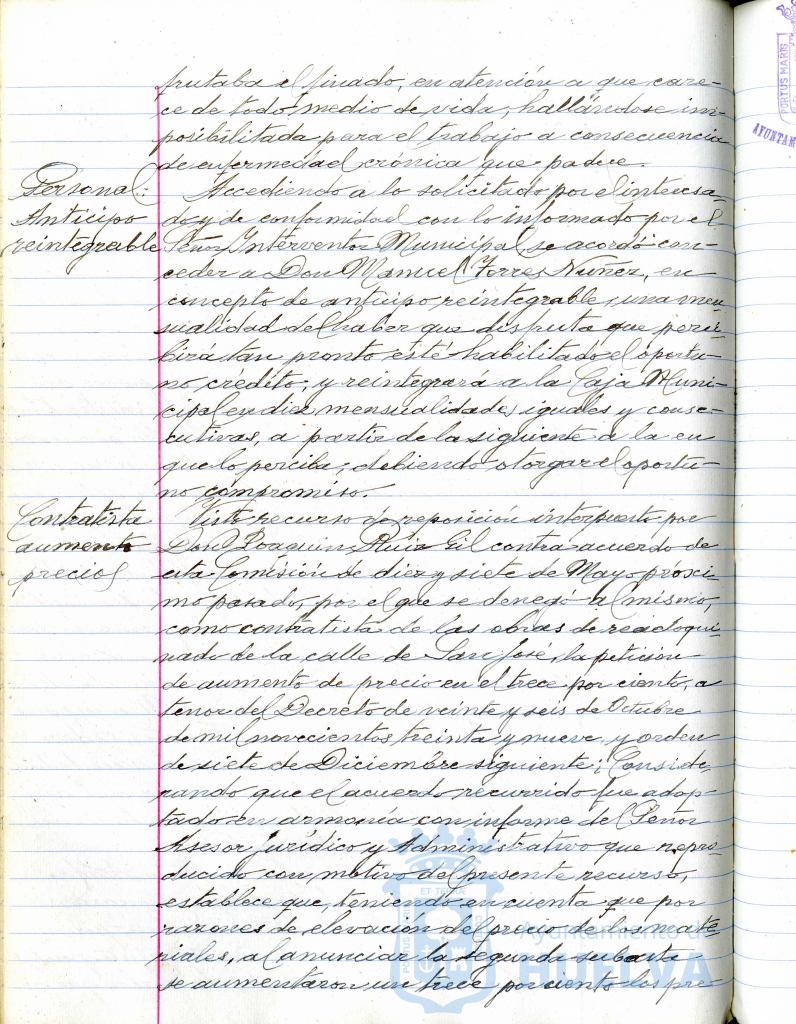 frutaba el finado, en atención a que care-
ce de todo medio de vida, hallándose im-
posibilitada para el trabajo a consecuencia
de enfermedad crónica que padece.
Personal:
Anticipo
reintegrable
Accediendo a lo solicitado por el interesa-
do y de conformidad con lo informado por el
Señor Interventor Municipal, se acordó con-
ceder a Don Manuel Torres Núñez, en
concepto de anticipo reintegrable, una men-
sualidad del haber que disfruta que perci-
birá tan pronto esté habilitado el oportu-
no crédito; y reintegrará a la Caja Muni-
cipal en diez mensualidades iguales y conse-
cutivas, a partir de la siguiente a la en
que lo perciba; debiendo otorgar el oportu-
no compromiso.
Contratista
aumento
precios
Visto recurso de reposición interpuesto por
Don Joaquín Ruiz Gil contra acuerdo de
esta Comisión de diez y siete de Mayo próxi-
mo pasado, por el que se denegó al mismo,
como contratista de las obras de readoqui-
nado de la calle de San José, la petición
de aumento de precio en el trece por ciento, a
tenor del Decreto de veinte y seis de Octubre
de mil novecientos treinta y nueve y orden
de siete de Diciembre siguiente; Conside-
rando que el acuerdo recurrido fue adop-
tado en armonía con informe del Señor
Asesor Jurídico y Administrativo que repro-
ducido con motivo del presente recurso,
establece que, teniendo en cuenta que por
razones de elevación del precio de los mate-
riales, al anunciar la segunda subasta
se aumentaron un trece por ciento los pre
PORTUS MARIS
AYUNTAM
Ayuntamiento de
HUELVA